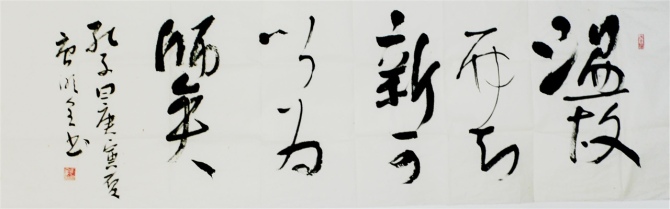 温故
而知
新可
以为
师矣
孔子曰庚寅夏